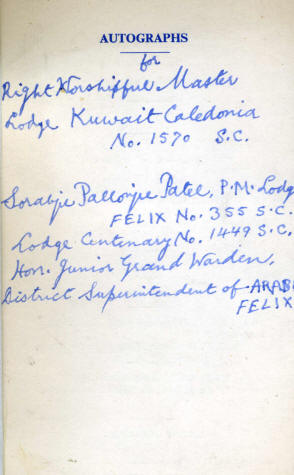 AUTOGRAPHS
for
Right Worshipful Master
Lodge Kuwait Caledonia
No. 1570 S.C.
Sorabji Pallonjee Patel, P.M. Lodg
FELIX No. 355 S.C.
Lodge Centenary No. 1449 S.C,
Hon. Junior Grand Warden,
District Superintendent of ARAB
FELIX